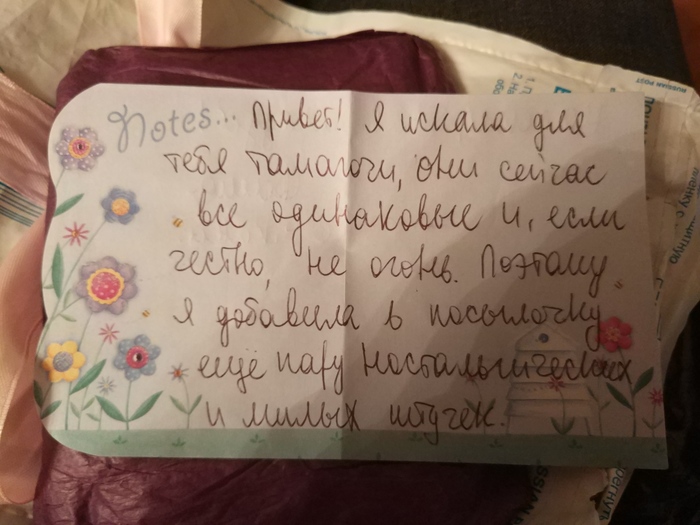 Notes... Привет! Я искала для
тебя тамагочи, они сейчас
все одинаковые и, если
честно, не огонь. Поэтому
я добавила в посылочку
ещё пару ностальгических
и милых штучек.
RUSSIAN POST